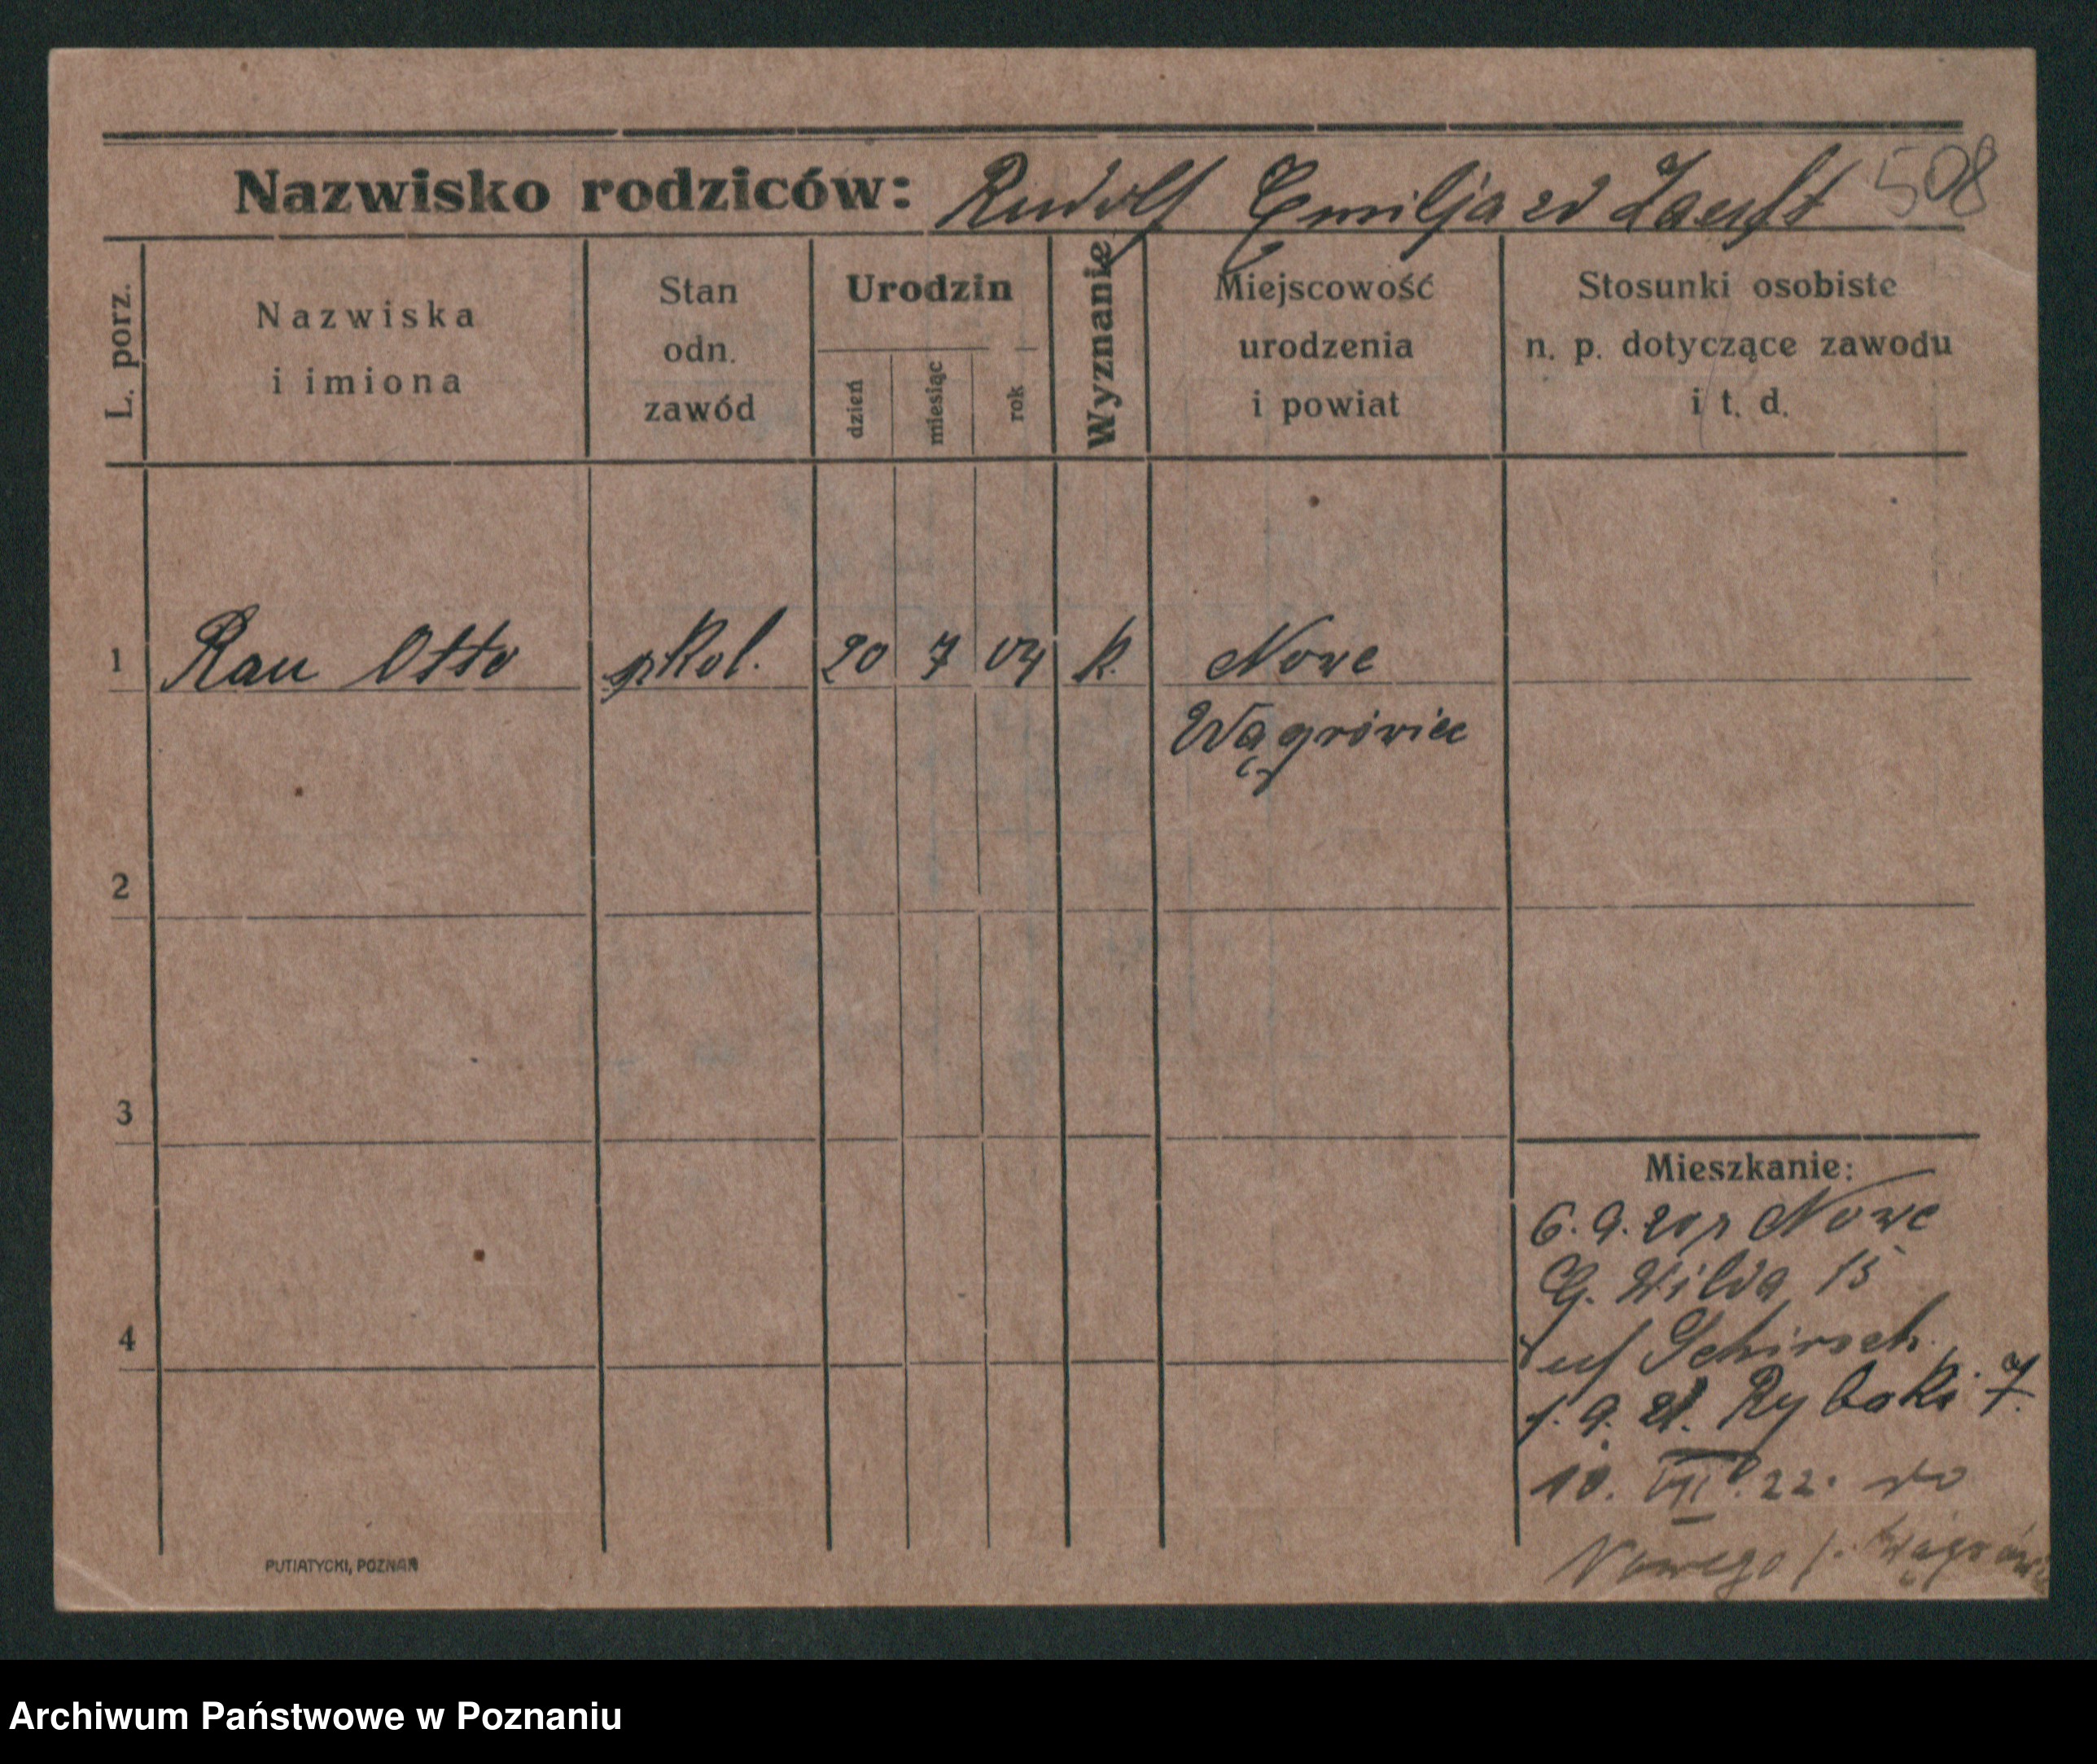 508
Nazwisko rodziców: Rudolf Emilja zd Zaeuft
L. porz.
Nazwiska
i imiona
Stan
odn.
zawód
Urodzin
dzień
miesiąc
rok
Wyznanie
Miejscowość
urodzenia
i powiat
Stosunki osobiste
n. p. dotyczące zawodu
i t. d.
1 Rau Otto 20 7 04 k. Nowe
Wągrówiec
2
3
4
Mieszkanie:
6. 9. 20 Nowe
G. Wilda 15
Schirsch.
1. 9. 21. Rybaki 7.
10. VIII. 22. do
Nowego p. Wągrówiec
PUTIATYCKI, POZNAŃ
Archiwum Państwowe w Poznaniu